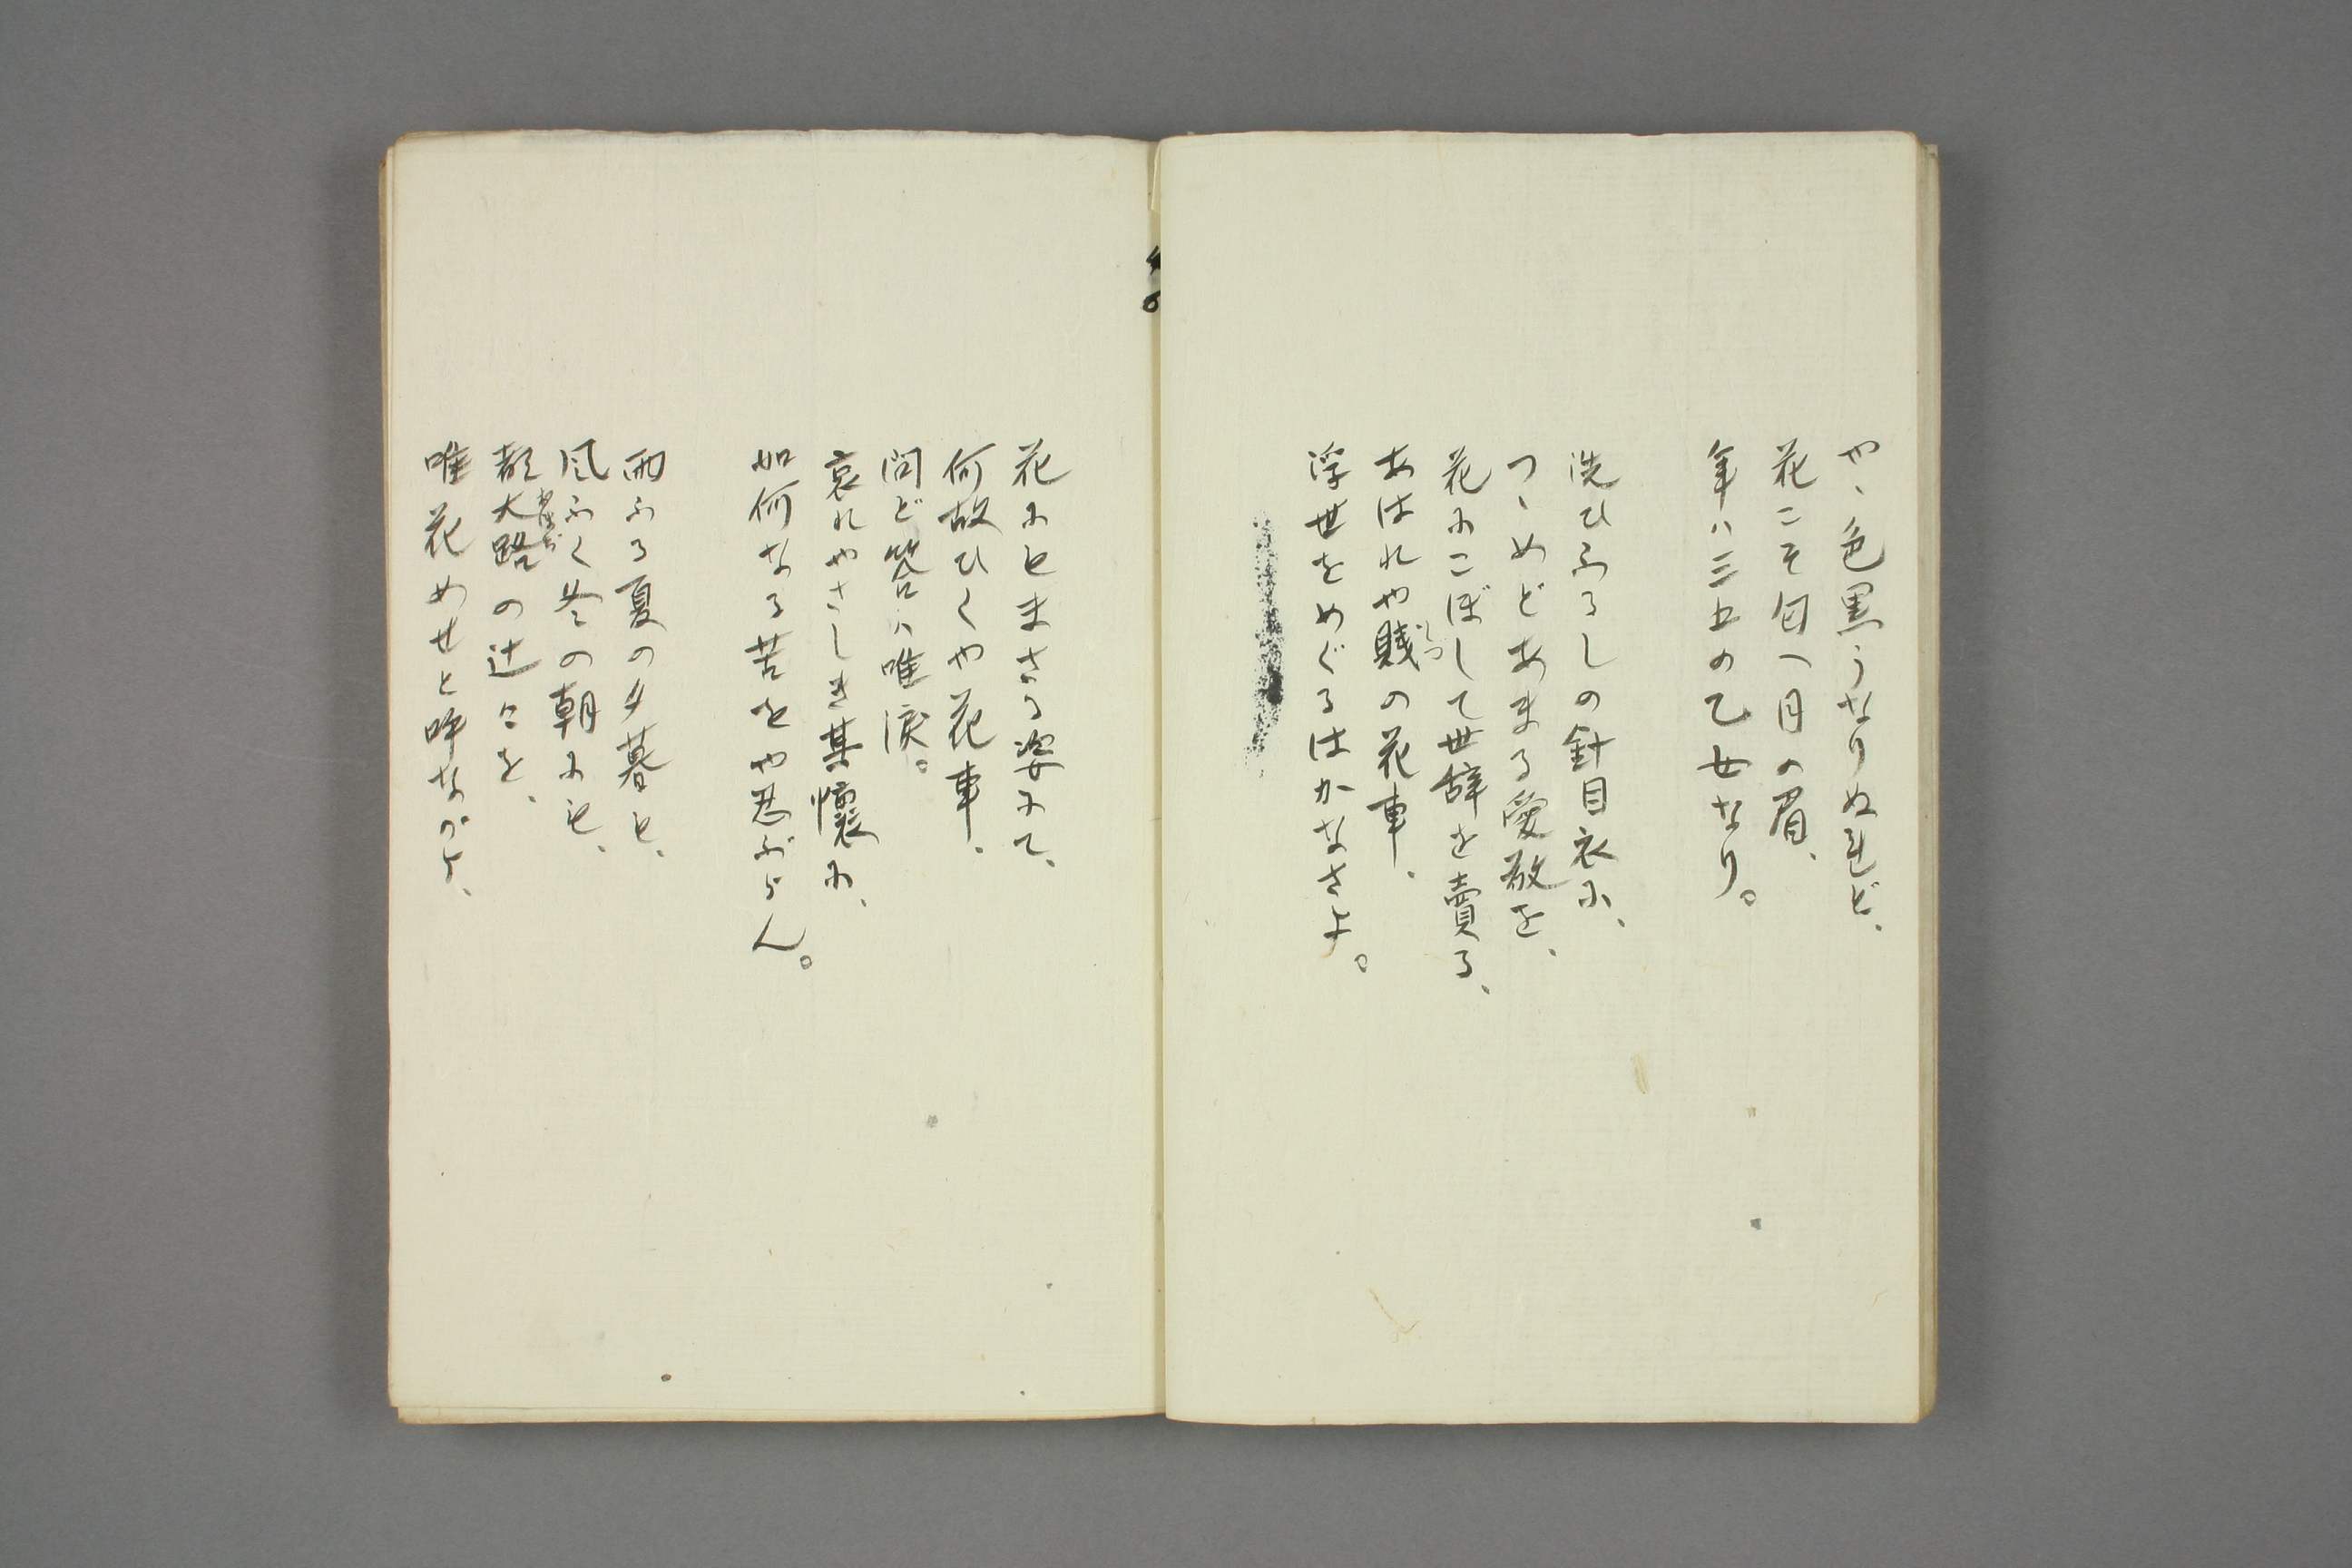 やゝ色黒うなりぬれど、
花こそ匂へ月の眉、
年ハ三五の乙女なり。
洗ひふるしの針目衣に、
つゝめどあまる愛敬を、
花にこぼして世辞を売る、
あはれや賤の花車、
浮世をめぐるはかなさよ。
花にもまさる姿にて、
何故ひくや花車、
問ど答ハ唯涙。
哀れやさしき其懐に、
如何なる苦をや忍ぶらん。
雨ふる夏の夕暮も、
風ふく冬の朝にも、
都大路の辻々を、
唯花めせと呼ながら、